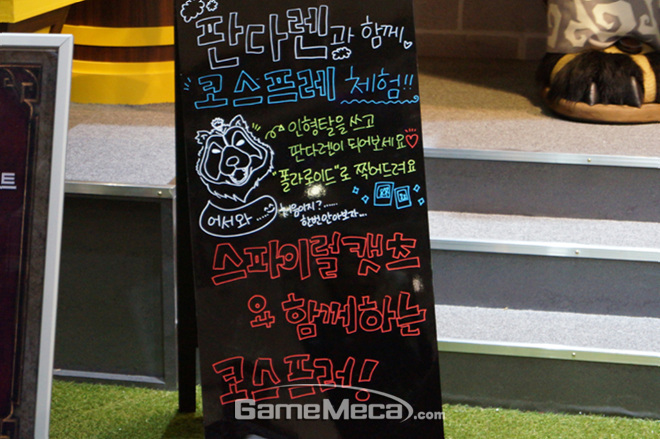 판다렌과 함께
코스프레 체험!!
인형탈을 쓰고
판다렌이 되어보세요♡
"폴라로이드"로 찍어드려요
어서와
처음이지?......
한번 안아보자...
스파이럴캣츠
와 함께하는
코스프레!
트
GameMeca.com